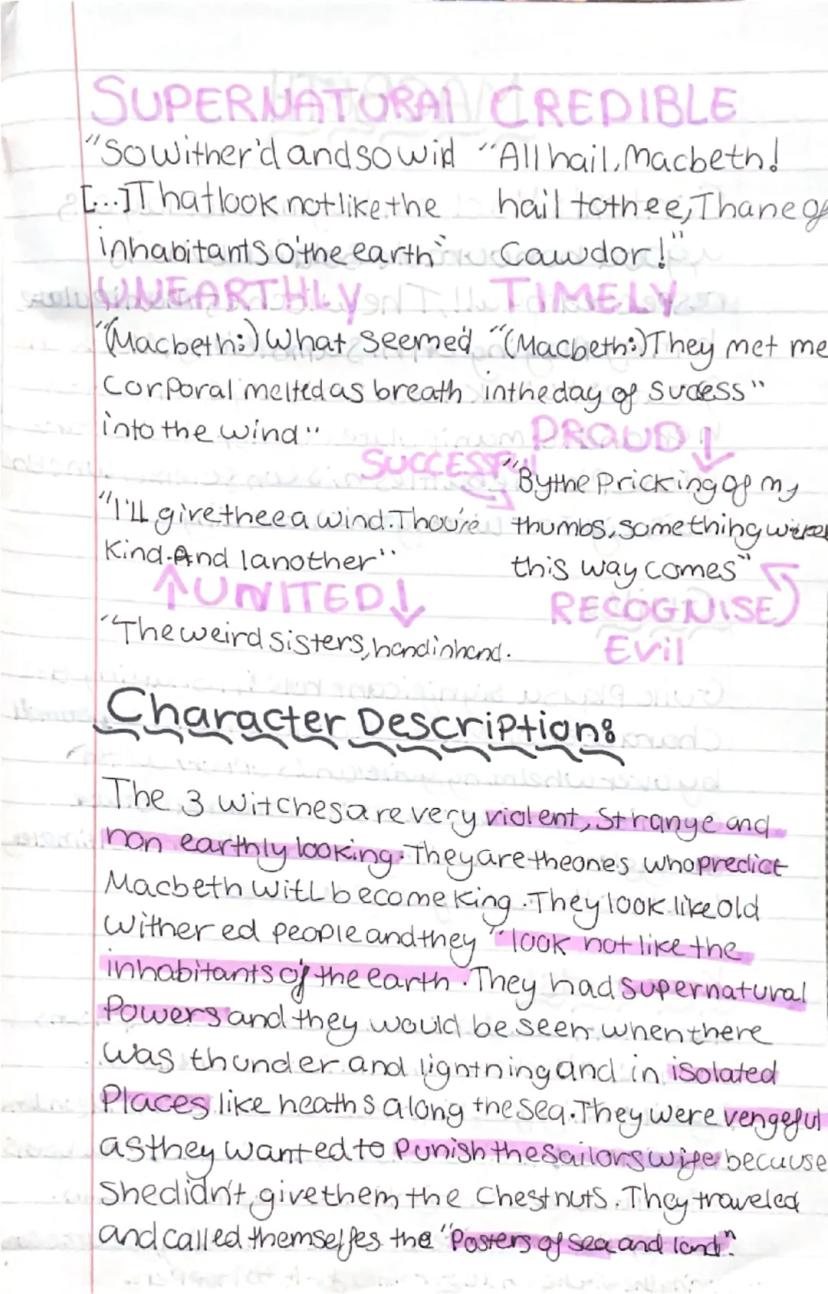 SUPERNATURAL CREDIBLE
"So wither'd and so wid "All hail, Macbeth!
[...] That look not like the hail to thee, Thane of
inhabitants o'the earth" Cawdor!"
UNEARTHLY TIMELY
"(Macbeth:) What seemed "(Macbeth:) They met me
corporal melted as breath in the day of sucess"
into the wind" PROUD ↓
SUCCESSFUl "By the pricking of my
"I'll give thee a wind. Thou're thumbs, something
kind. And I another" this way comes"
↑ UNITED ↓ RECOGNISE
"The weird sisters, hand in hand. Evil
Character Descriptions
The 3 witches are very violent, strange and
non earthly looking. They are the ones who predict
Macbeth will become king. They look like old
withered people and they "look not like the
inhabitants of the earth. They had supernatural
Powers and they would be seen when there
was thunder and lightning and in isolated
Places like heaths along the sea. They were vengeful
as they wanted to punish the sailors wife because
she didn't give them the chestnuts. They traveled
and called themselfes the "Posters of sea and land".